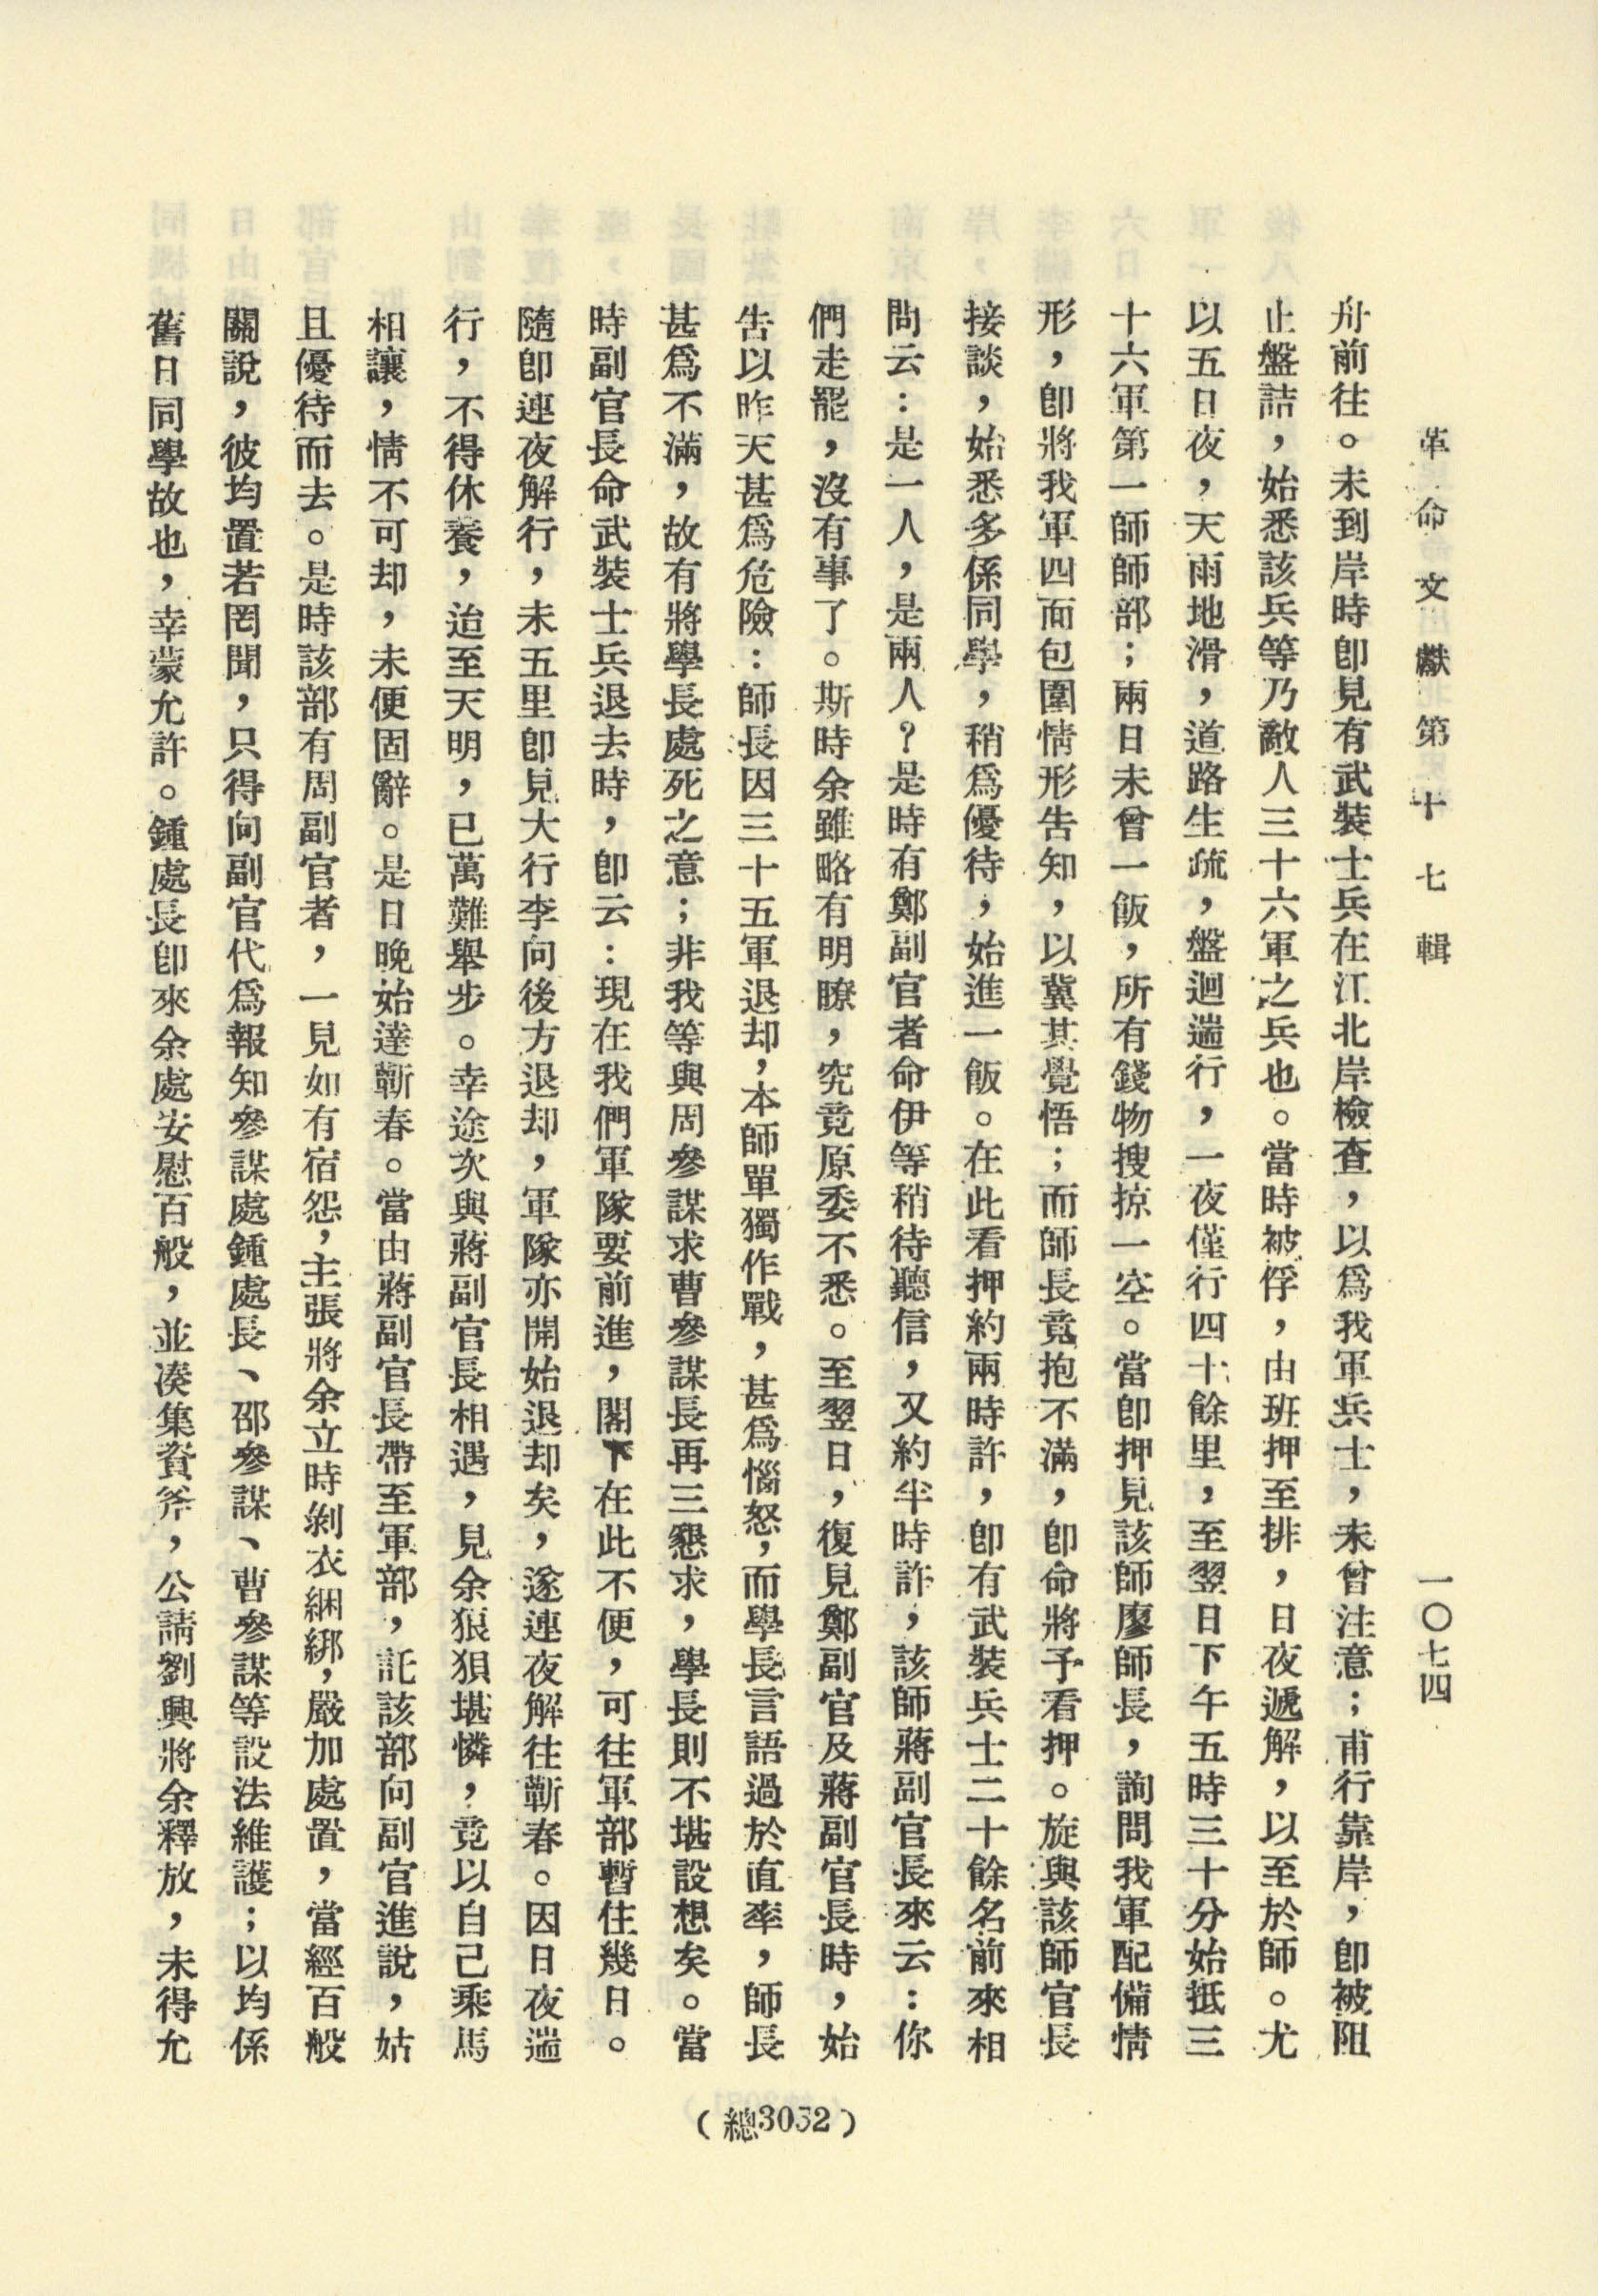 革命文獻第十七輯
一〇七四
舟前往。未到岸時卽見有武裝士兵在江北岸檢查，以爲我軍兵士，未曾注意；甫行靠岸，卽被阻
止盤詰，始悉該兵等乃敵人三十六軍之兵也。當時被俘，由班押至排，日夜遞解，以至於師。尤
以五日夜，天雨地滑，道路生疏，盤迴遄行，一夜僅行四十餘里，至翌日下午五時三十分始抵三
十六軍第一師師部；兩日未曾一飯，所有錢物搜掠一空。當卽押見該師廖師長，詢問我軍配備情
形，卽將我軍四面包圍情形告知，以冀其覺悟；而師長竟抱不滿，卽命將予看押。旋與該師官長
接談，始悉多係同學，稍爲優待，始進一飯。在此看押約兩時許，卽有武裝兵士二十餘名前來相
問云：是一人，是兩人？是時有鄭副官者命伊等稍待聽信，又約半時許，該師蔣副官長來云：你
們走罷，沒有事了。斯時余雖略有明瞭，究竟原委不悉。至翌日，復見鄭副官及蔣副官長時，始
告以昨天甚爲危險：師長因三十五軍退却，本師單獨作戰，甚爲惱怒，而學長言語過於直率，師長
甚爲不滿，故有將學長處死之意；非我等與周參謀求曹參謀長再三懇求，學長則不堪設想矣。當
時副官長命武裝士兵退去時，卽云：現在我們軍隊要前進，閣下在此不便，可往軍部暫住幾日。
隨卽連夜解行，未五里卽見大行李向後方退却，軍隊亦開始退却矣，遂連夜解往蘄春。因日夜遄
行，不得休養，迨至天明，已萬難舉步。幸途次與蔣副官長相遇，見余狼狽堪憐，竟以自己乘馬
相讓，情不可却，未便固辭。是日晚始達蘄春。當由蔣副官長帶至軍部，託該部向副官進說，姑
且優待而去。是時該部有周副官者，一見如有宿怨，主張將余立時剝衣綑綁，嚴加處置，當經百般
關說，彼均置若罔聞，只得向副官代爲報知參謀處鍾處長、邵參謀、曹參謀等設法維護；以均係
舊日同學故也，幸蒙允許。鍾處長卽來余處安慰百般，並凑集資斧，公請劉興將余釋放，未得允
（總3032）